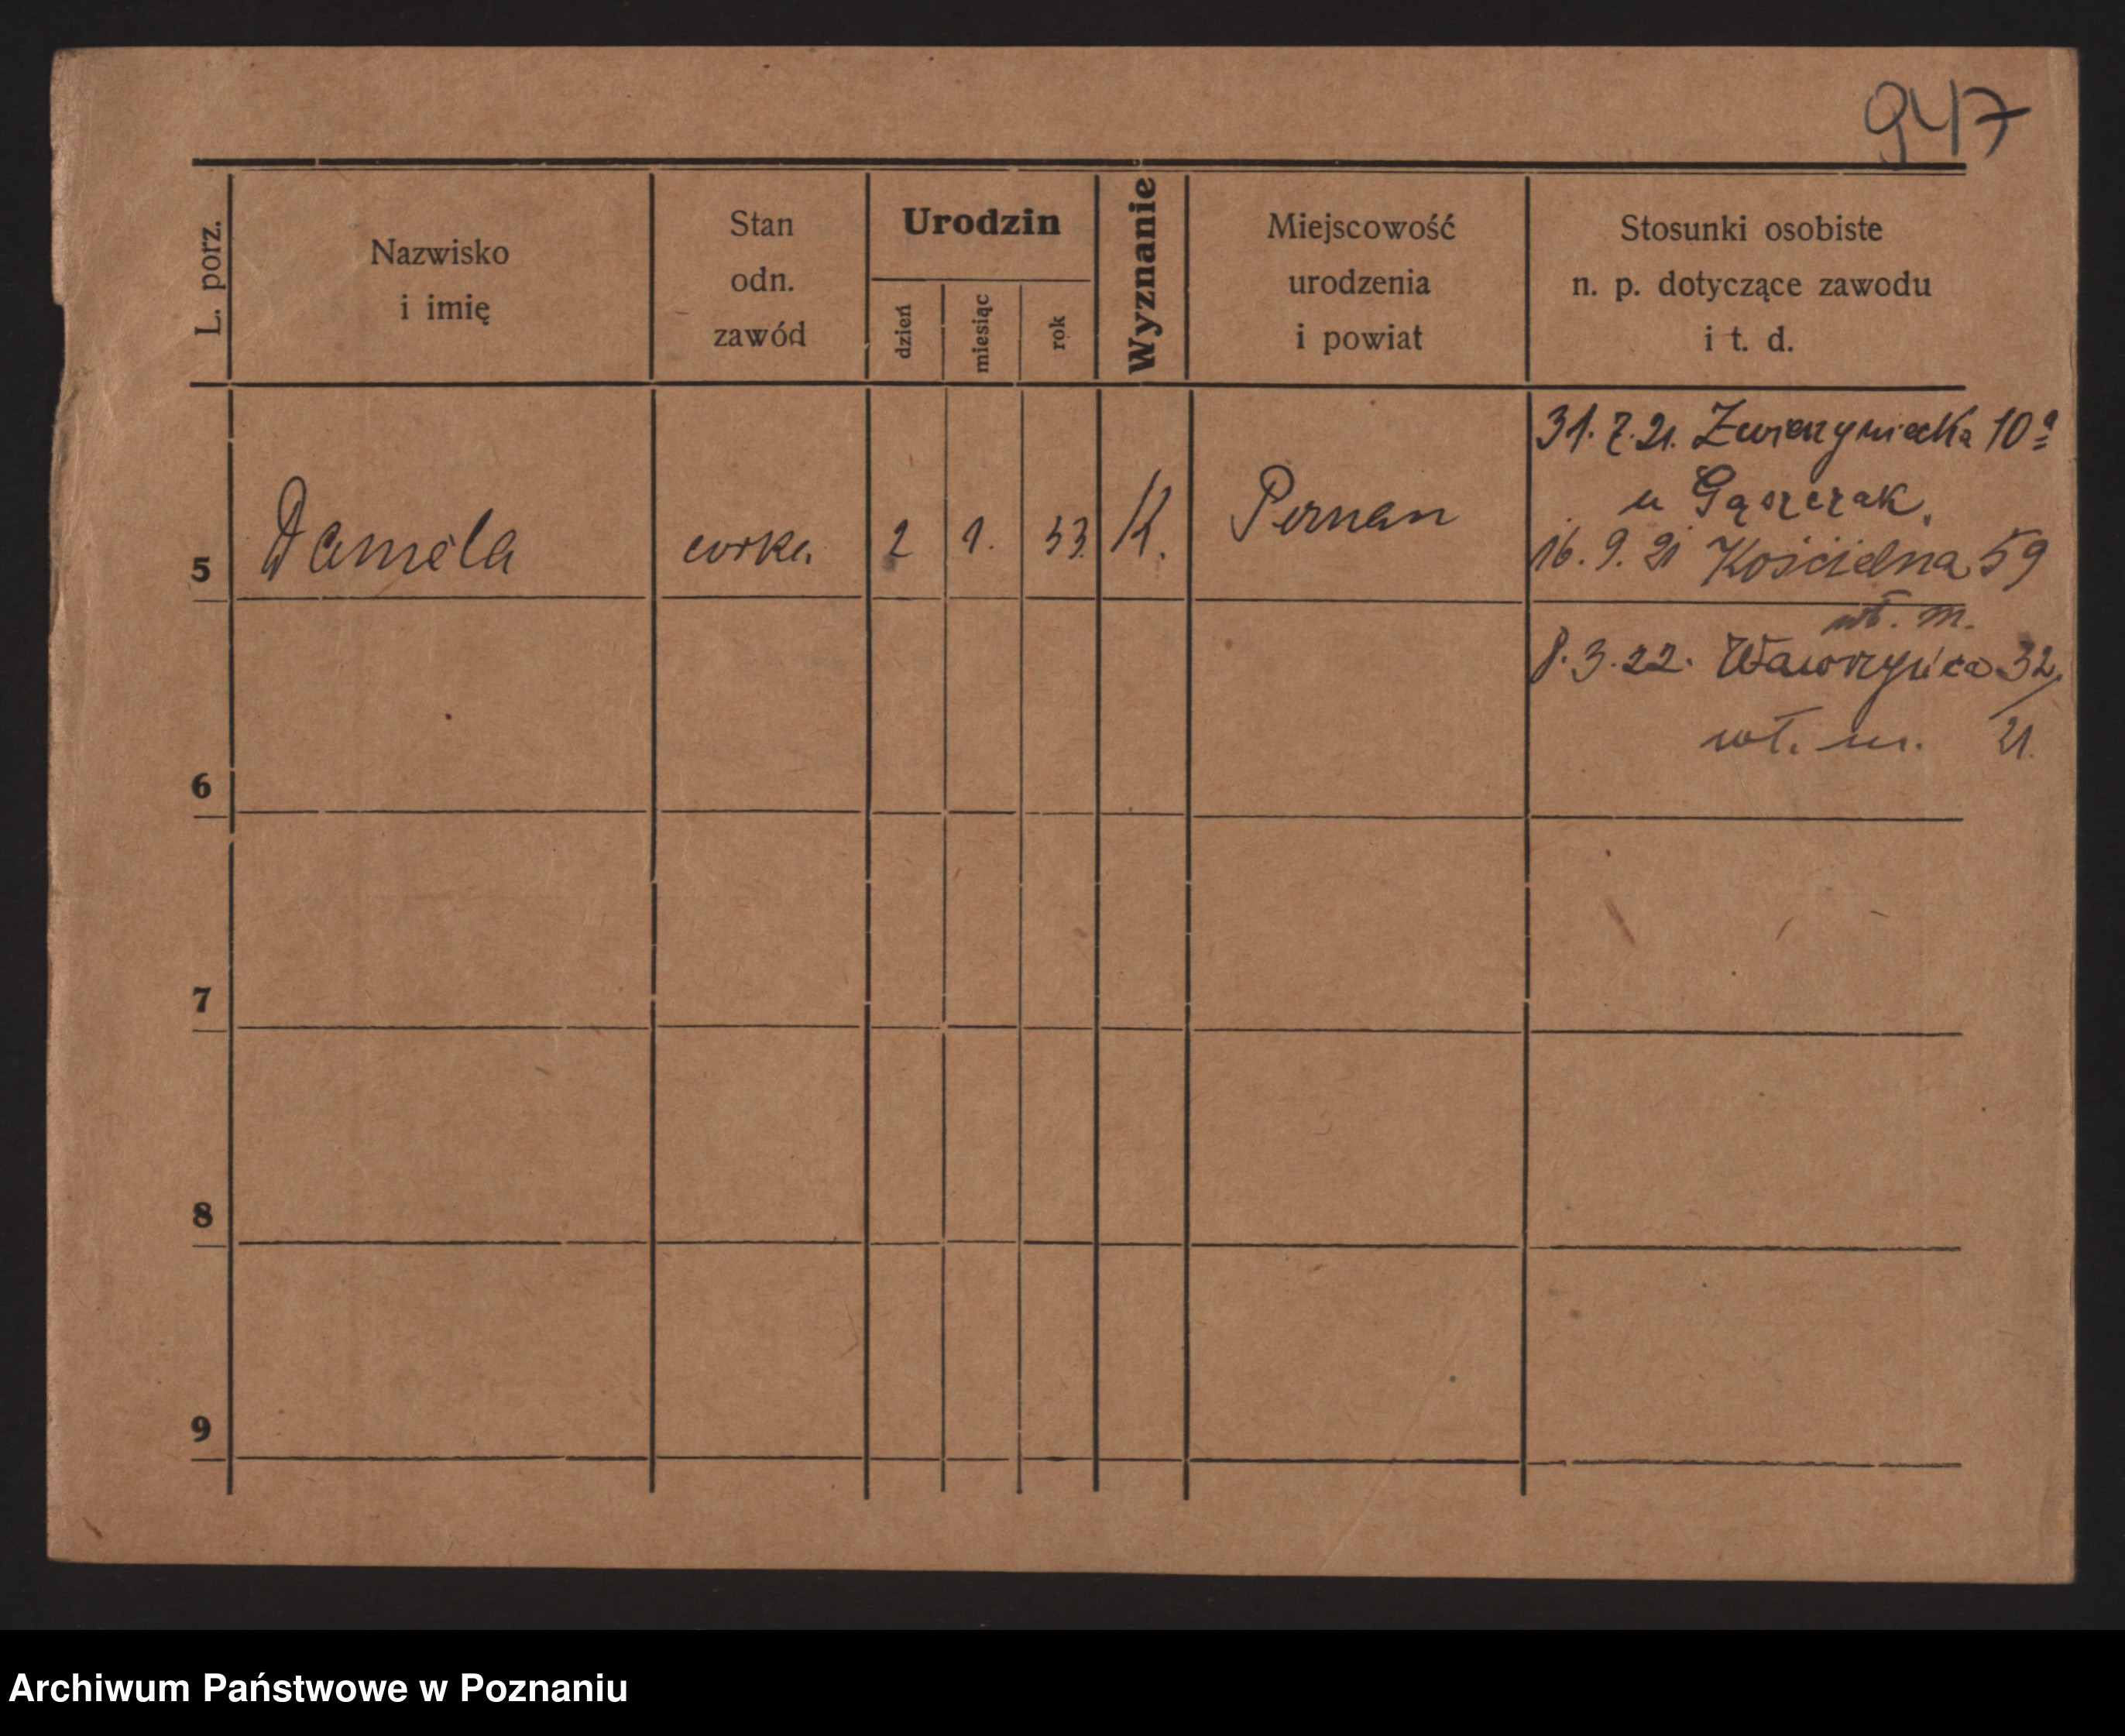 947
L. porz.
Nazwisko
i imię
Stan
odn.
zawód
Urodzin
dzień
miesiąc
rok
Wyznanie
Miejscowość
urodzenia
i powiat
Stosunki osobiste
n. p. dotyczące zawodu
i t. d.
5
Daniela
corka.
2
1.
33.
K.
Poznan
31. 7. 21. Zwierzyniecka 10a
u Gąszczak.
16. 9. 21 Kościelna 59
wł. m.
8. 3. 22. Wawrzyńca 32/
wł. m. 21.
6
7
8
9
Archiwum Państwowe w Poznaniu